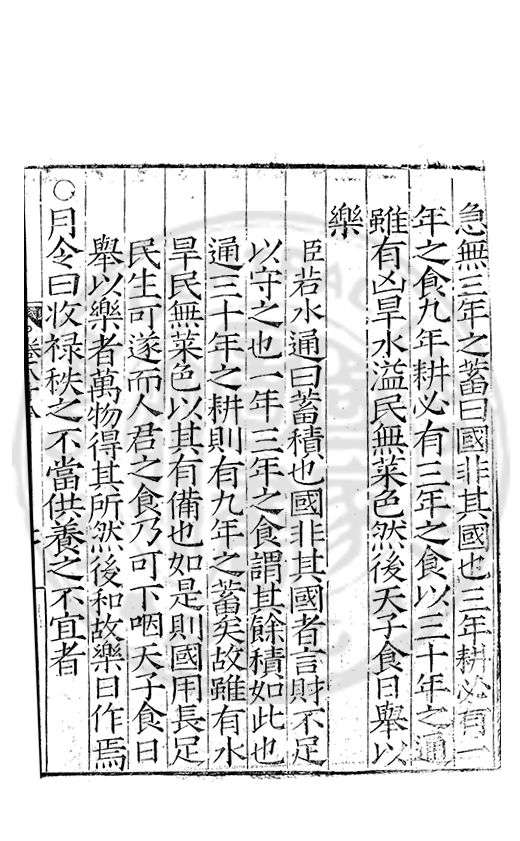 急無三年之蓄曰國非其國也三年耕必有一
年之食九年耕必有三年之食以三十年之通
雖有凶旱水溢民無菜色然後天子食日舉以
樂
臣若水通曰蓄積也國非其國者言財不足
以守之也一年三年之食謂其餘積如此也
通三十年之耕則有九年之蓄矣故雖有水
旱民無菜色以其有備也如是則國用長足
民生可遂而人君之食乃可下咽天子食日
舉以樂者萬物得其所然後和故樂日作焉
○月令曰收祿秩之不當供養之不宜者